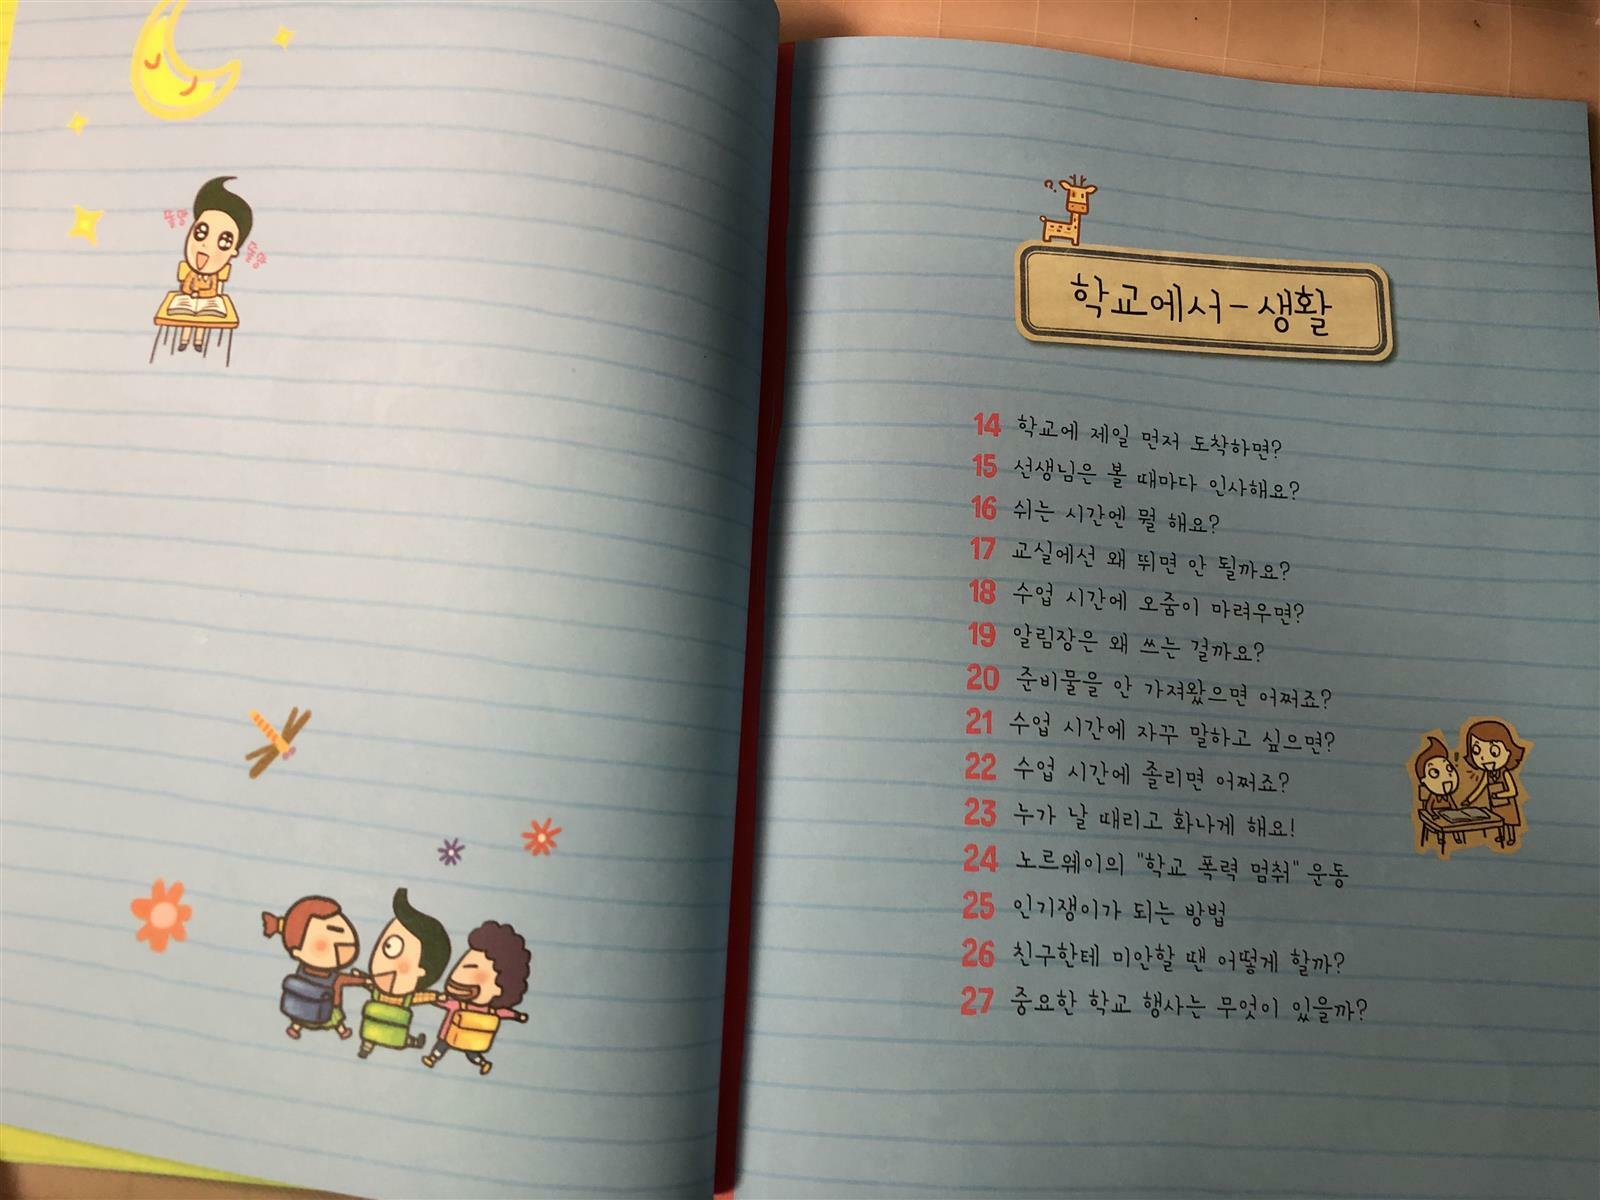 똘망
똘망
?
학교에서-생활
14 학교에 제일 먼저 도착하면?
15 선생님은 볼 때마다 인사해요?
16 쉬는 시간엔 뭘 해요?
17 교실에선 왜 뛰면 안 될까요?
18 수업 시간에 오줌이 마려우면?
19 알림장은 왜 쓰는 걸까요?
20 준비물을 안 가져왔으면 어쩌죠?
21 수업 시간에 자꾸 말하고 싶으면?
22 수업 시간에 졸리면 어쩌죠?
23 누가 날 때리고 화나게 해요!
24 노르웨이의 "학교 폭력 멈춰" 운동
25 인기쟁이가 되는 방법
26 친구한테 미안할 땐 어떻게 할까?
27 중요한 학교 행사는 무엇이 있을까?